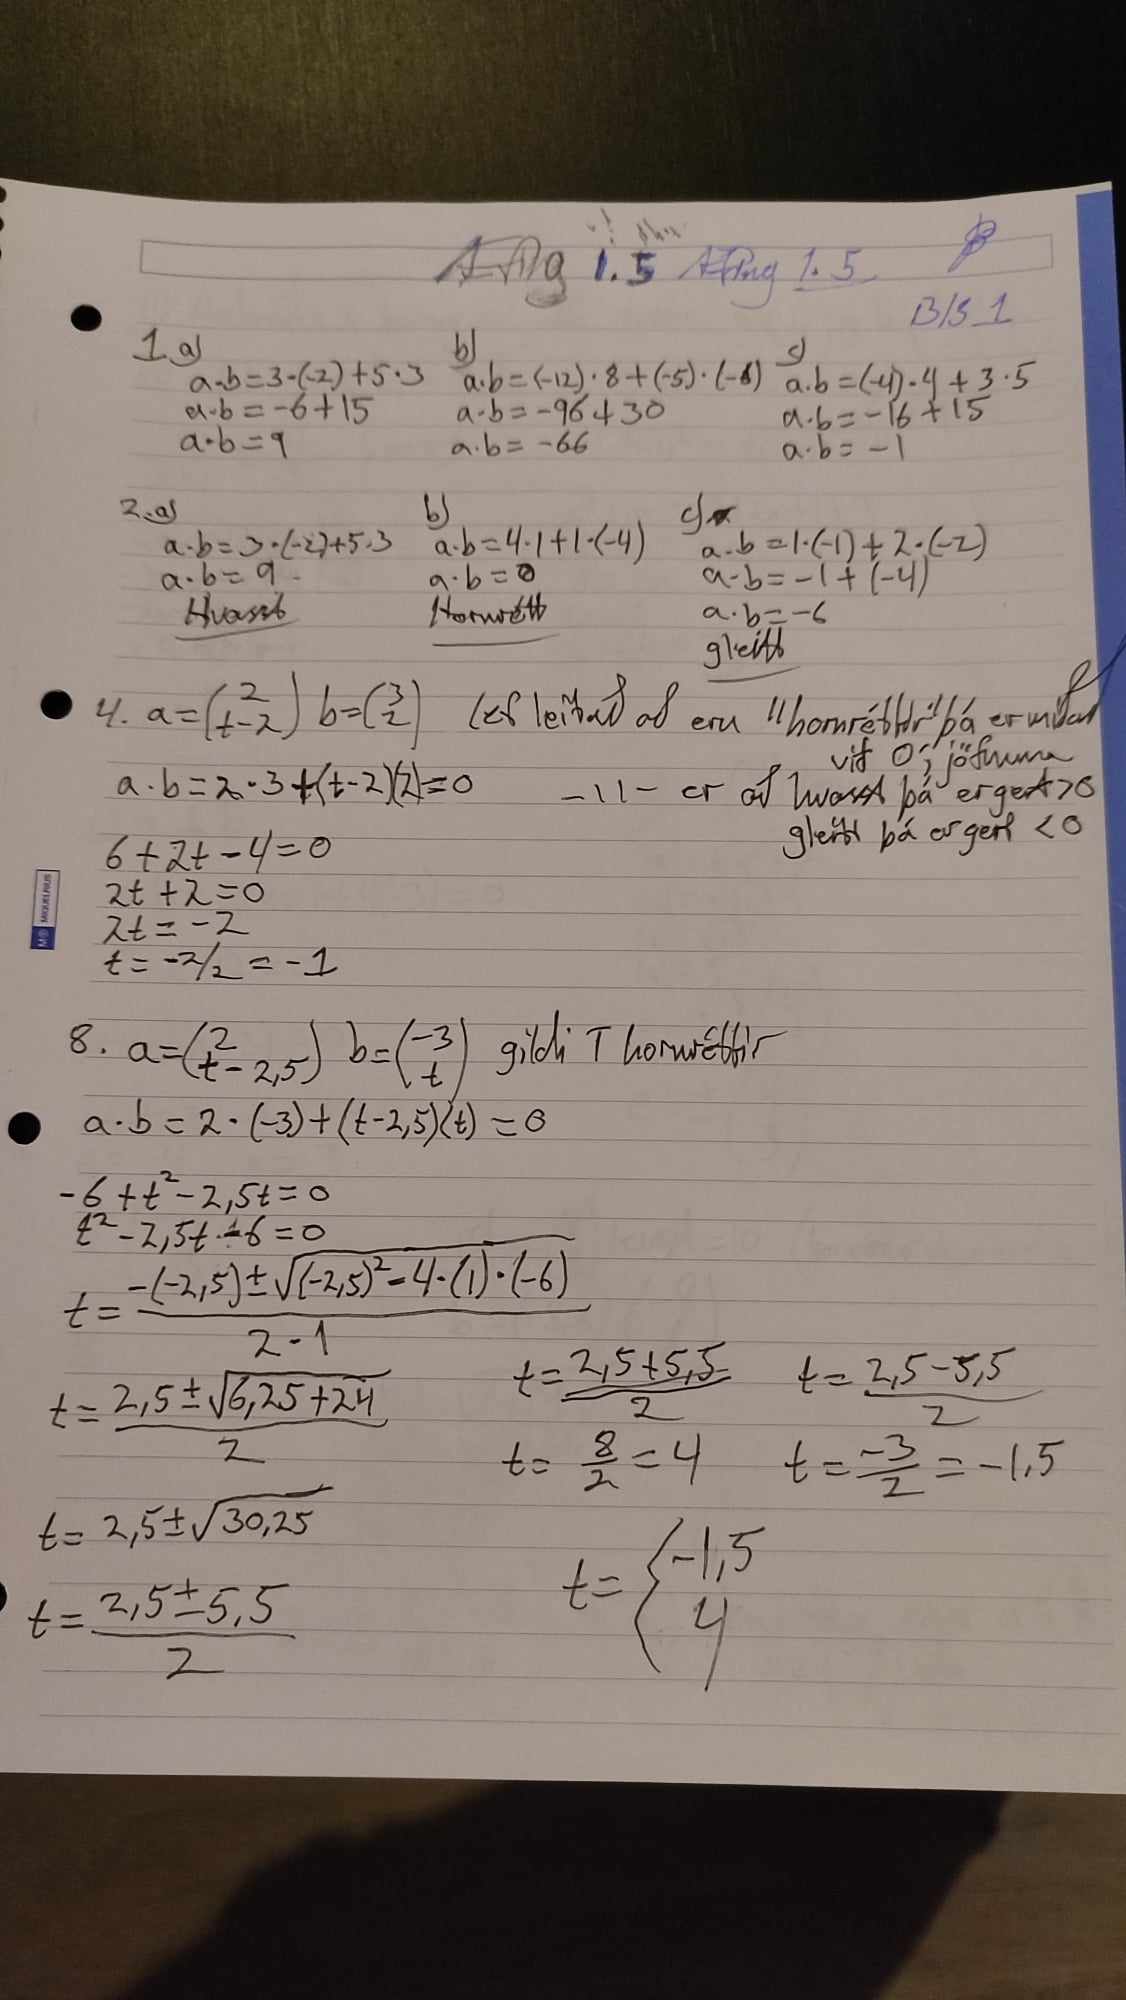 Æfing 1.5 Æfing 1.5
Bls 1
1. a)
a·b=3·(-2)+5·3
a·b=-6+15
a·b=9
b)
a·b=(-12)·8+(-5)·(-6)
a·b=-96+30
a·b=-66
c)
a·b=(-4)·4+3·5
a·b=-16+15
a·b=-1
2. a)
a·b=3·(-2)+5·3
a·b=9
Hvasst
b)
a·b=4·1+1·(-4)
a·b=0
Hornrétt
c)
a·b=1·(-1)+2·(-2)
a·b=-1+(-4)
a·b=-6
gleitt
4. a=(2 t-2) b=(3 2) (ef leitað að eru "hornréttir" þá er miðað
við 0 í jöfnuna
a·b=2·3+(t-2)(2)=0
-11- er að hvasst þá er gert >0
gleitt þá er gert <0
6+2t-4=0
2t+2=0
2t=-2
t=-2/2=-1
MIQUELRIUS
8. a=(2 t-2,5) b=(-3 t) gildi T hornréttir
a·b=2·(-3)+(t-2,5)(t)=0
-6+t²-2,5t=0
t²-2,5t-6=0
t=-(-2,5)±√(-2,5)²-4·(1)·(-6)
2·1
t=2,5±√6,25+24
2
t=2,5±√30,25
t=2,5±5,5
2
t=2,5+5,5
2
t=8/2=4
t=2,5-5,5
2
t=-3/2=-1,5
t={-1,5
4